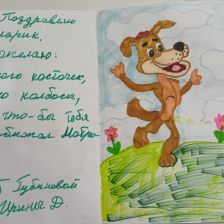 Поздравляю
Шарик.
желаю:
ного косточек,
о колбасы,
что-бы тебя
обижал Матро-
Губиновой
Ирины Д.